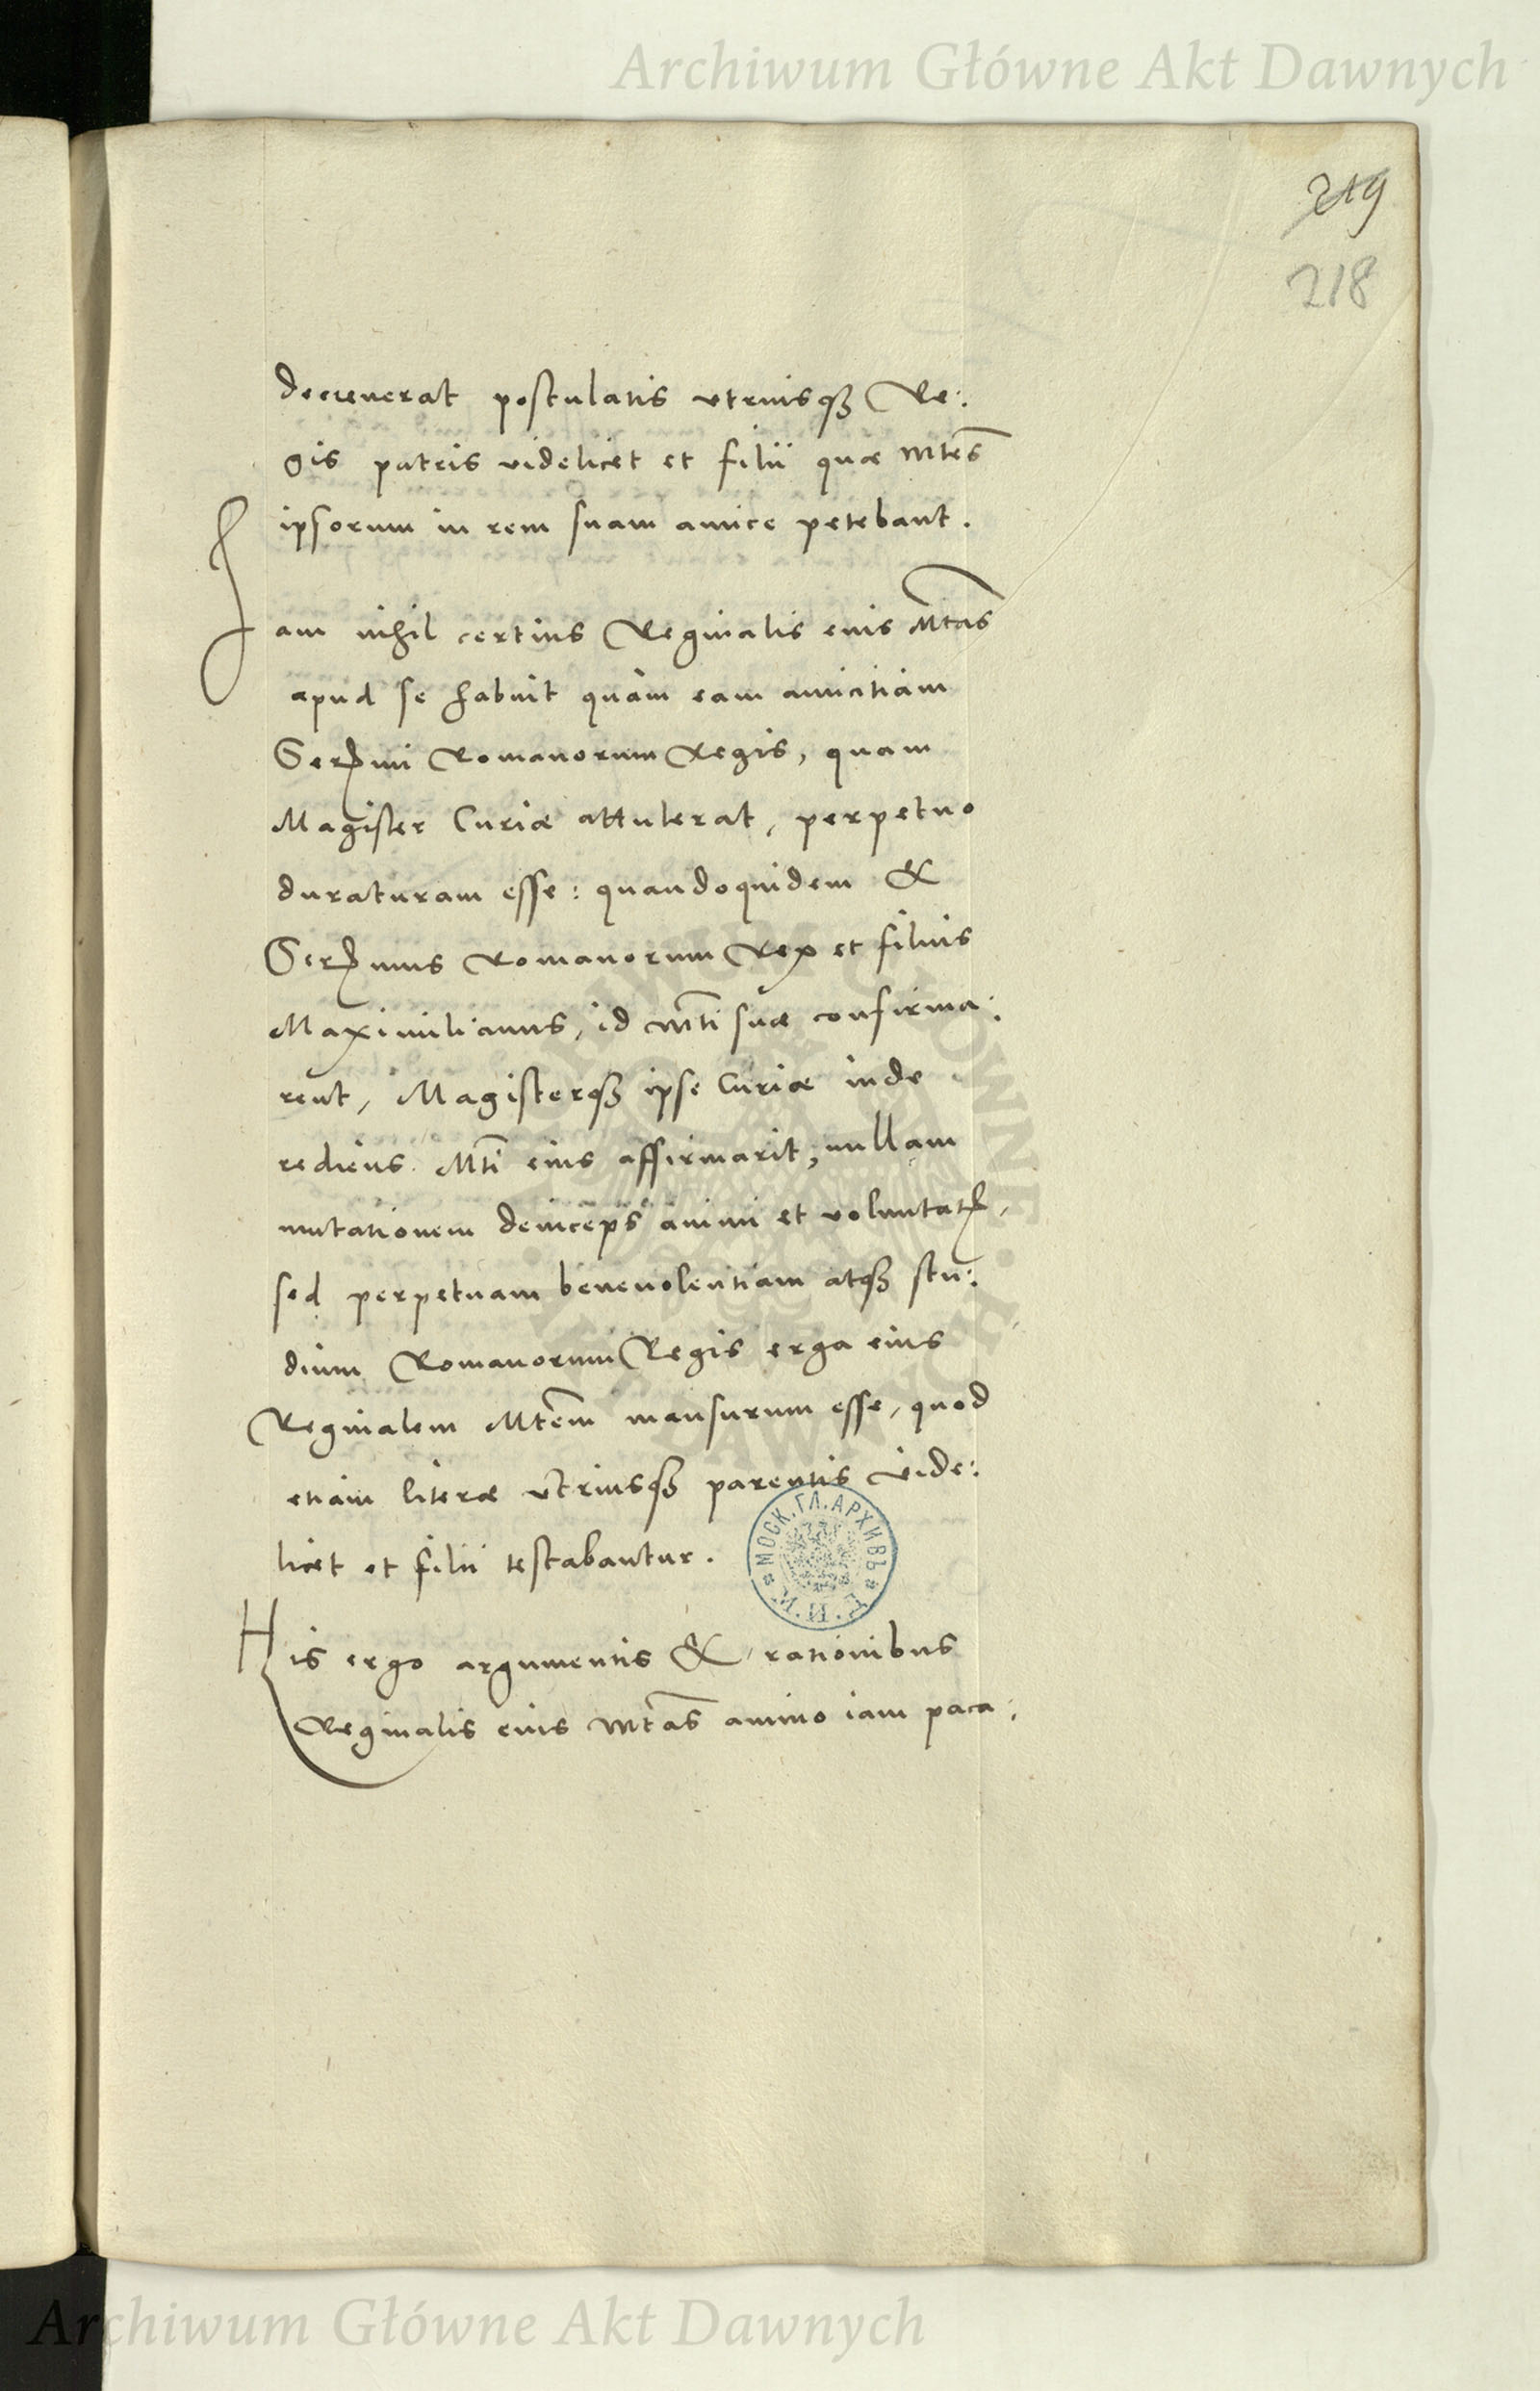 Archiwum Główne Akt Dawnych
219
218
decreuerat postulatis vtriusq3 Re:
gis patris videlicet et filii quæ Mtes
ipsorum in rem suam amice petebant.
Jam nihil certius Reginalis eius Mtas
apud se habuit quàm eam amicitiam
Serenmi Romanorum Regis, quam
Magister Curiæ attulerat, perpetuo
duraturam esse: quandoquidem &
Serenmus Romanorum Rex et filius
Maximilianus, id Mti suæ confirma:
rent, Magisterq3 ipse Curiæ inde
rediens Mti eius affirmarit, nullam
mutationem deinceps animi et voluntatis,
sed perpetuam beneuolentiam atq3 stu:
dium Romanorum Regis erga eius
Reginalem Mtem mansurum esse, quod
etiam literæ vtriusq3 parentis vide:
licet et filii testabantur.
МОСК.ГЛ.АРХИВЪ
His ergo argumentis & rationibus
Reginalis eius Mtas animo iam paca:
Archiwum Główne Akt Dawnych